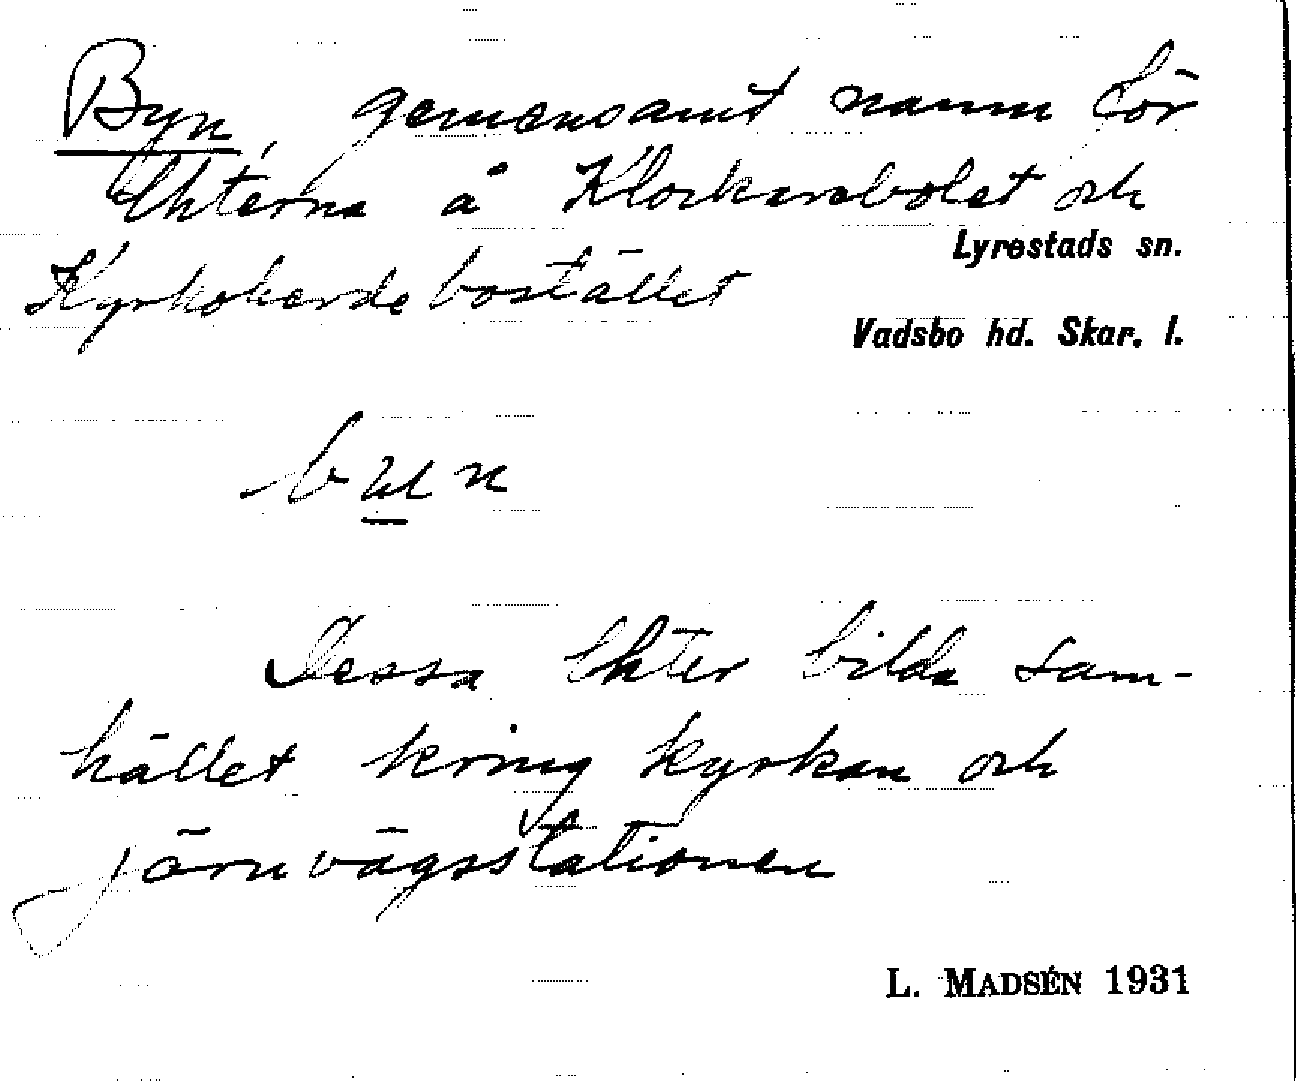 Byn, gemensamt namn för
lhterna å Klockarebolet och
Lyrestads sn.
Kyrkoherdebostället
Vadsbo hd. Skar. l.
bun
Dessa lhter bilda sam-
hället kring kyrkan och
järnvägsstationen
L. MADSÉN 1931